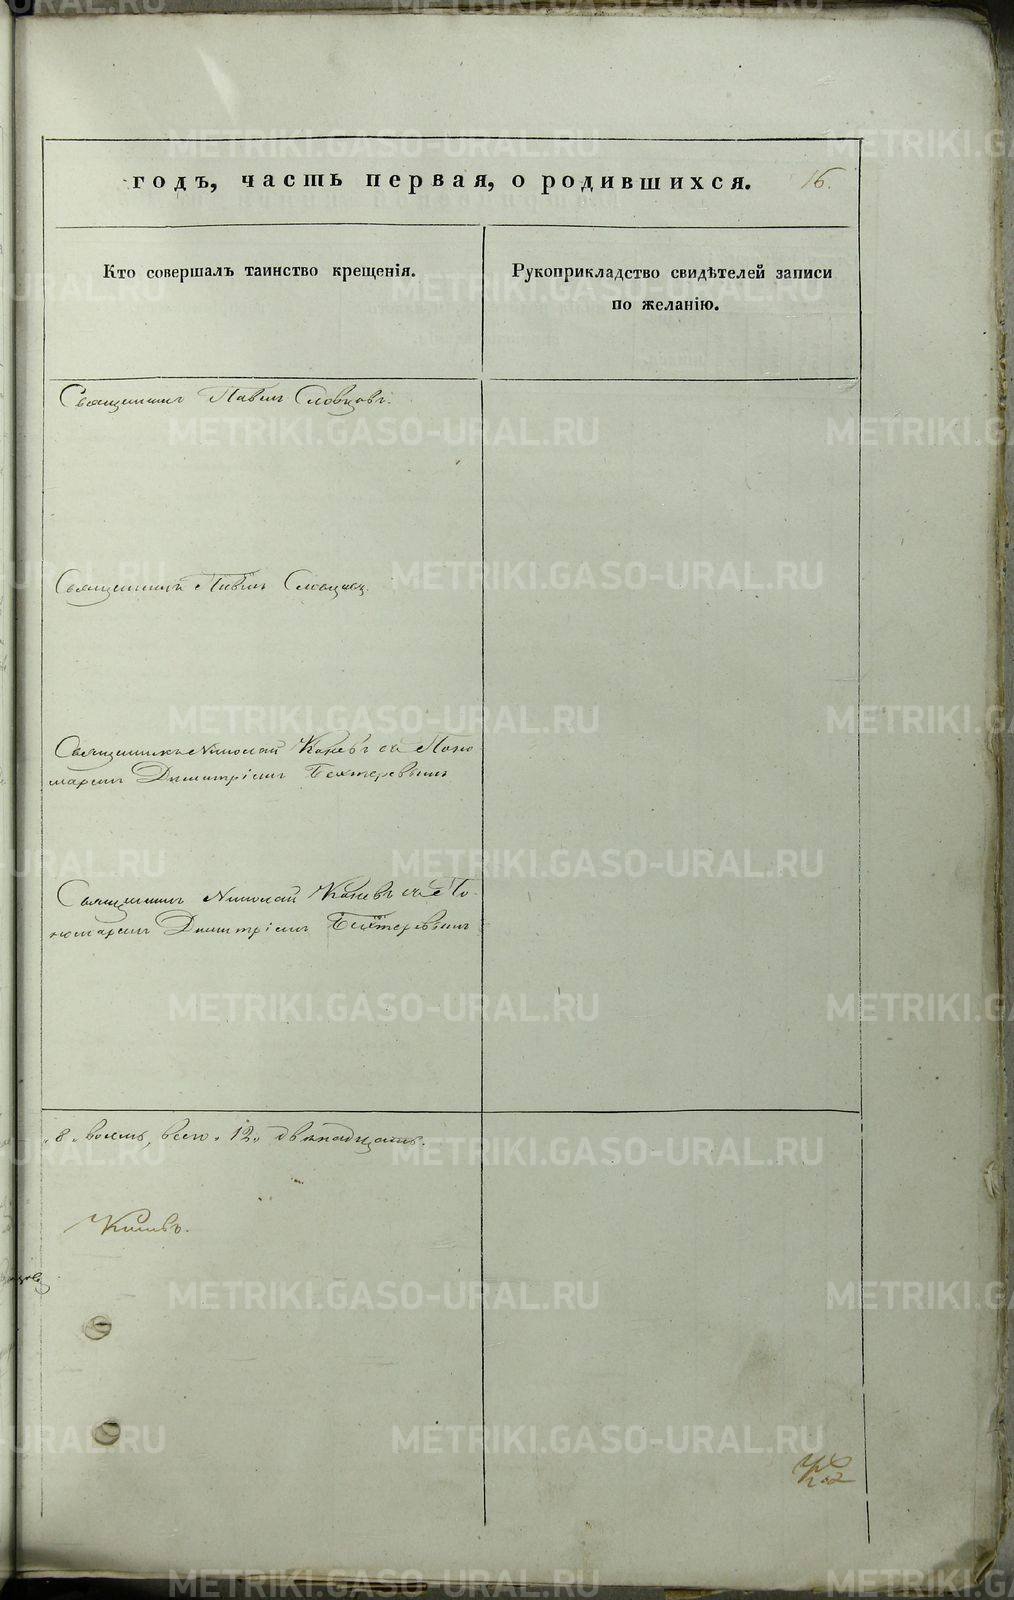 годъ, часть первая, о родившихся. 16.
Кто совершалъ таинство крещенія.
Рукоприкладство свидѣтелей записи
по желанію.
Священникъ Павелъ Словцовъ.
Священникъ Павелъ Словцовъ.
Священникъ Николай Коневъ съ Поно
маремъ Димитріемъ Бехтеревымъ
Священникъ Николай Коневъ съ По-
номаремъ Димитріемъ Бехтеревымъ
"8" восемь, всего "12" двенадцать.
METRIKI.GASO-URAL.RU